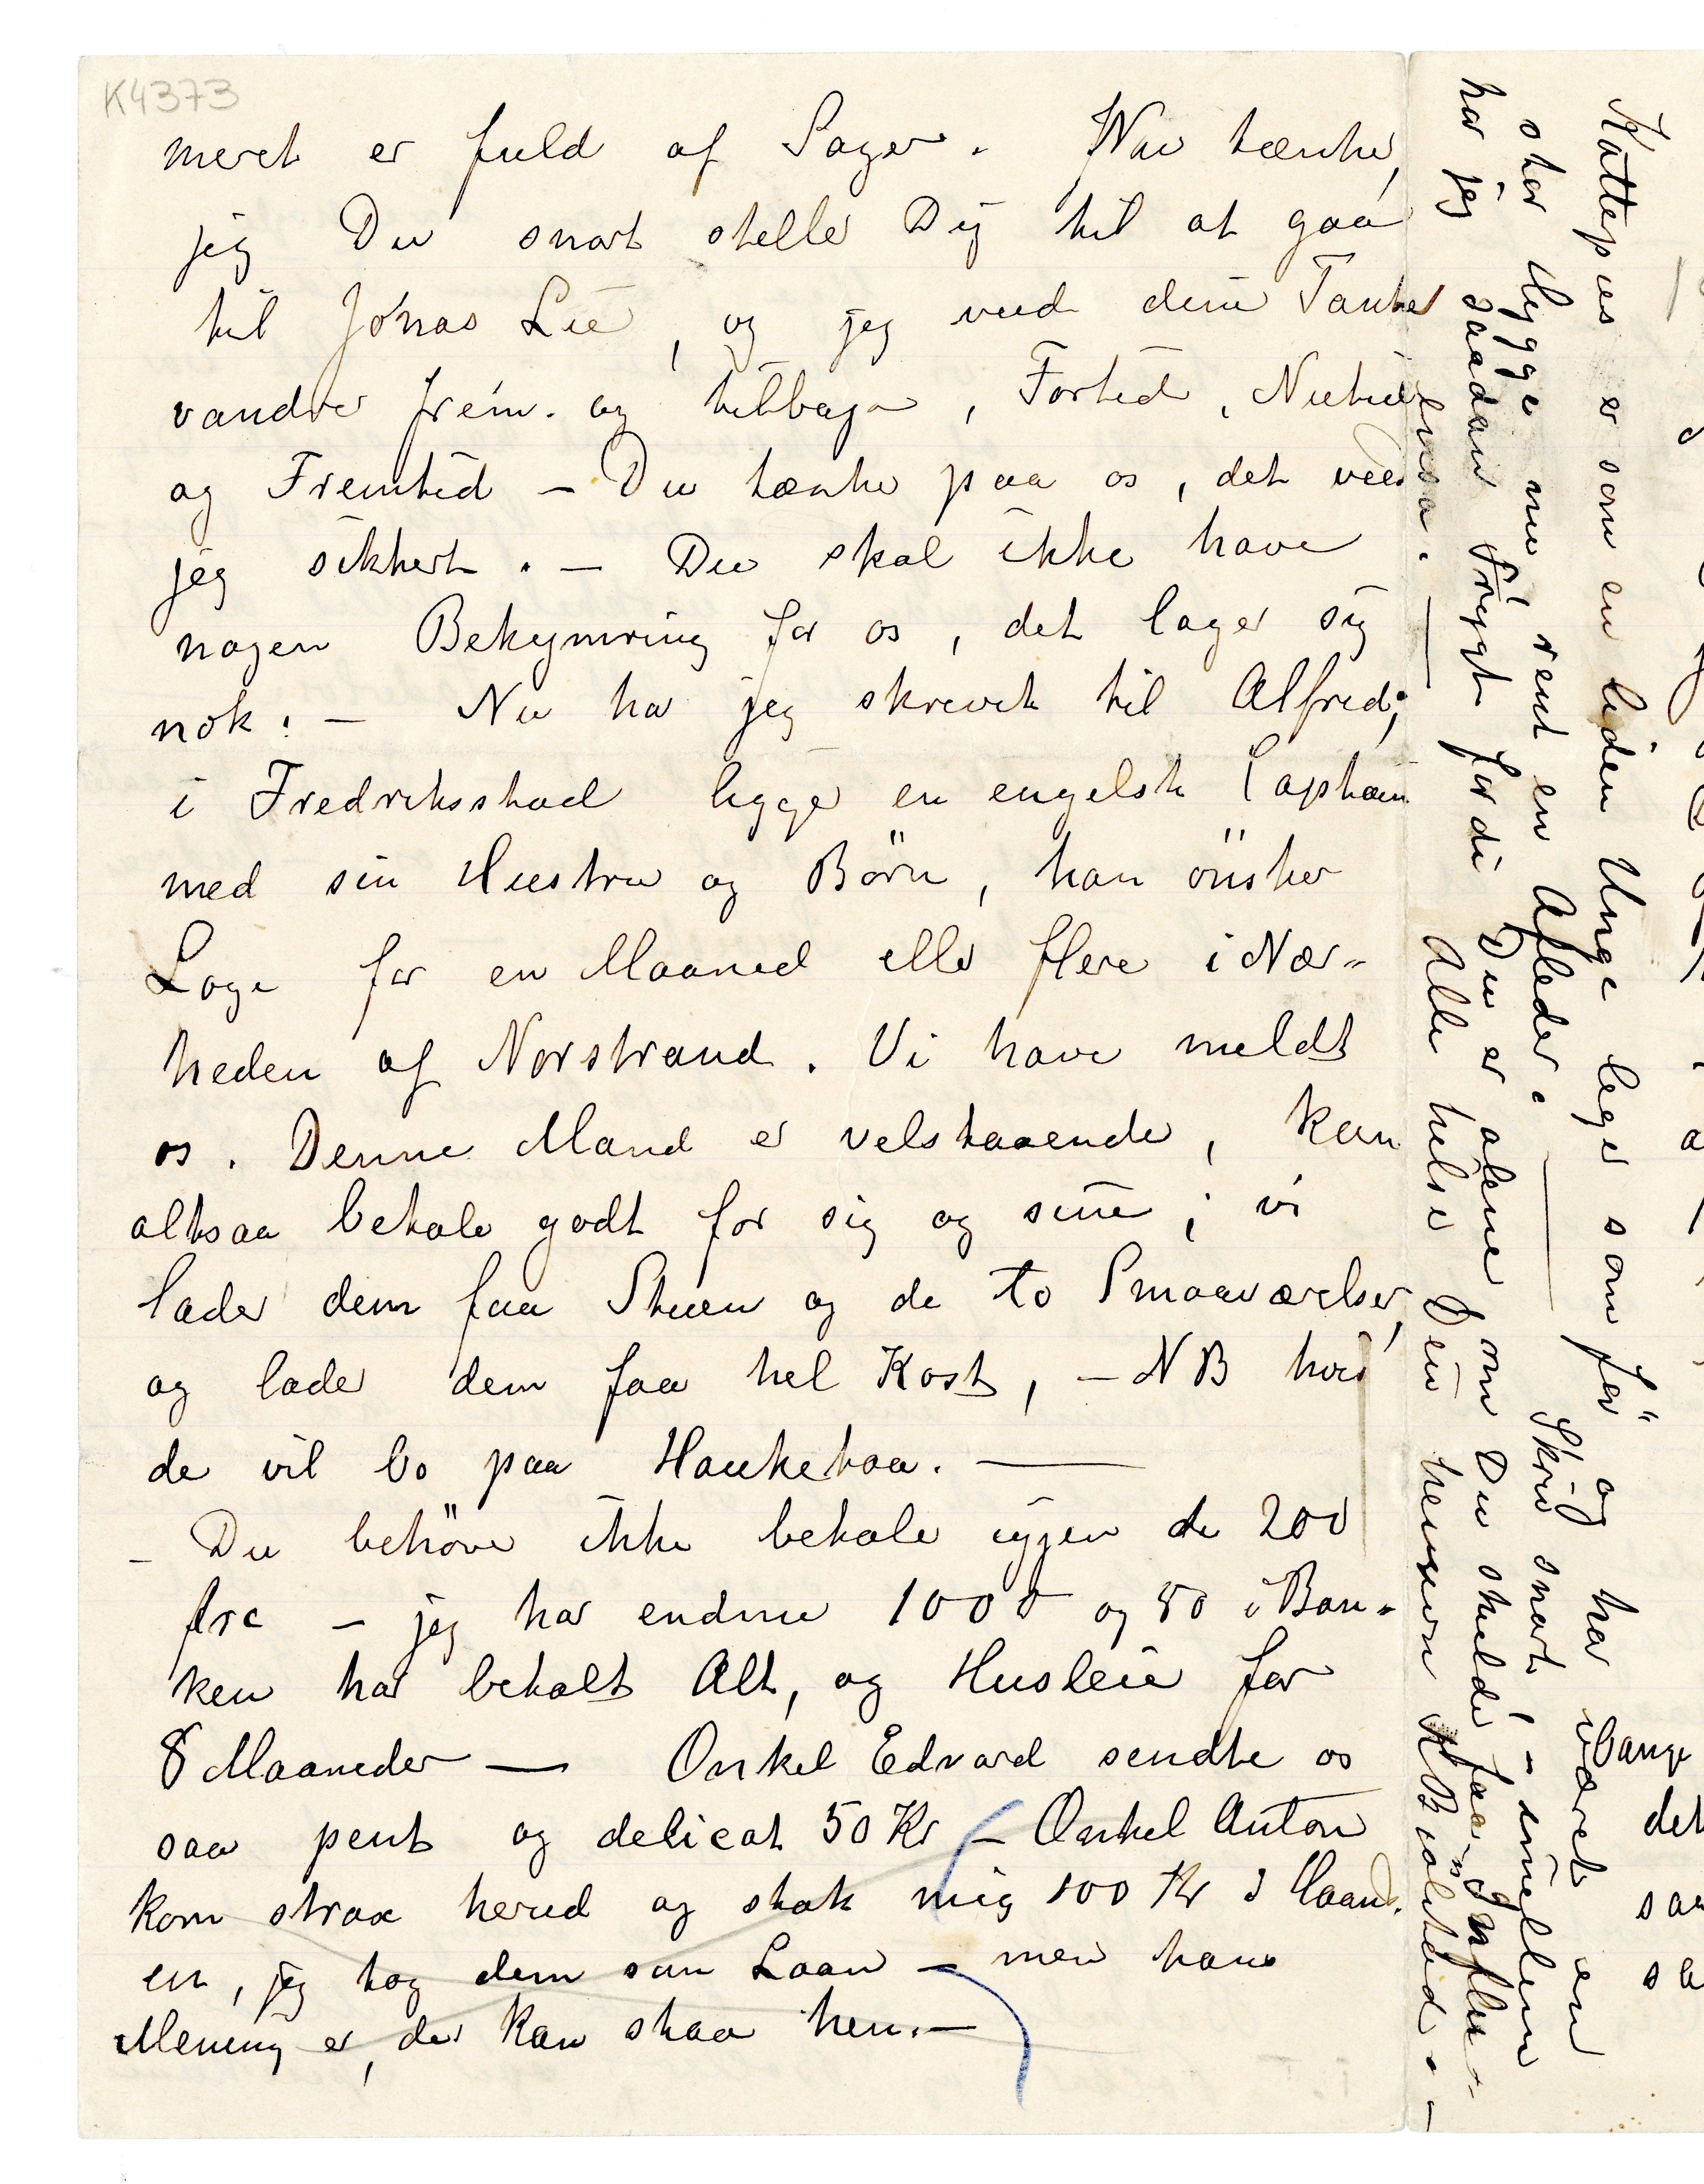 K4373
meret er fuld af Sager. Nu tænker
jeg Du snart steller Dig til at gaa
til Jonas Lie, og jeg veed dine Tanker
vandrer frem. og tilbage, Fortid, Nutid
og Fremtid – Du tænker paa os, det veed
jeg sikkert. – Du skal ikke have
nogen Bekymring for os, det lager sig
nok! – Nu har jeg skrevet til Alfred;
i Fredriksstad ligger en engelsk Captain
med sin Hustru og Börn, han önsker
Loge for en Maaned eller flere i Nær-
heden af Norstrand. Vi have meldt
os. Denne Mand er velstaaende, kan
altsaa betale godt for sig og sine; vi
lader dem faa Stuen og de to Smaaværelser,
og lader dem faa hel Kost, – NB hvis
de vil bo paa Hauketoa. —
– Du behöver ikke betale igjen de 200
frc – jeg har endnu 1000 og 80 i Ban-
ken har betalt Alt, og Husleie for
8 Maaneder — Onkel Edvard sendte os
saa pent og delicat 50 Kr – Onkel Anton
kom strax herud og stak mig 100 Kr i Haand.
en, jeg tog dem som Laan – men hans
Mening er, det kan staa hen. –
Kattepus er som en liden Unge leger som för og har været en
stor Hygge nu, rent en Afleder. — Skriv snart, – imellem
har jeg saadan Frygt fordi Du er alene om Du skulde faa Influ-
ensa. — Alle hilse Din hengivne KB
Bange
det